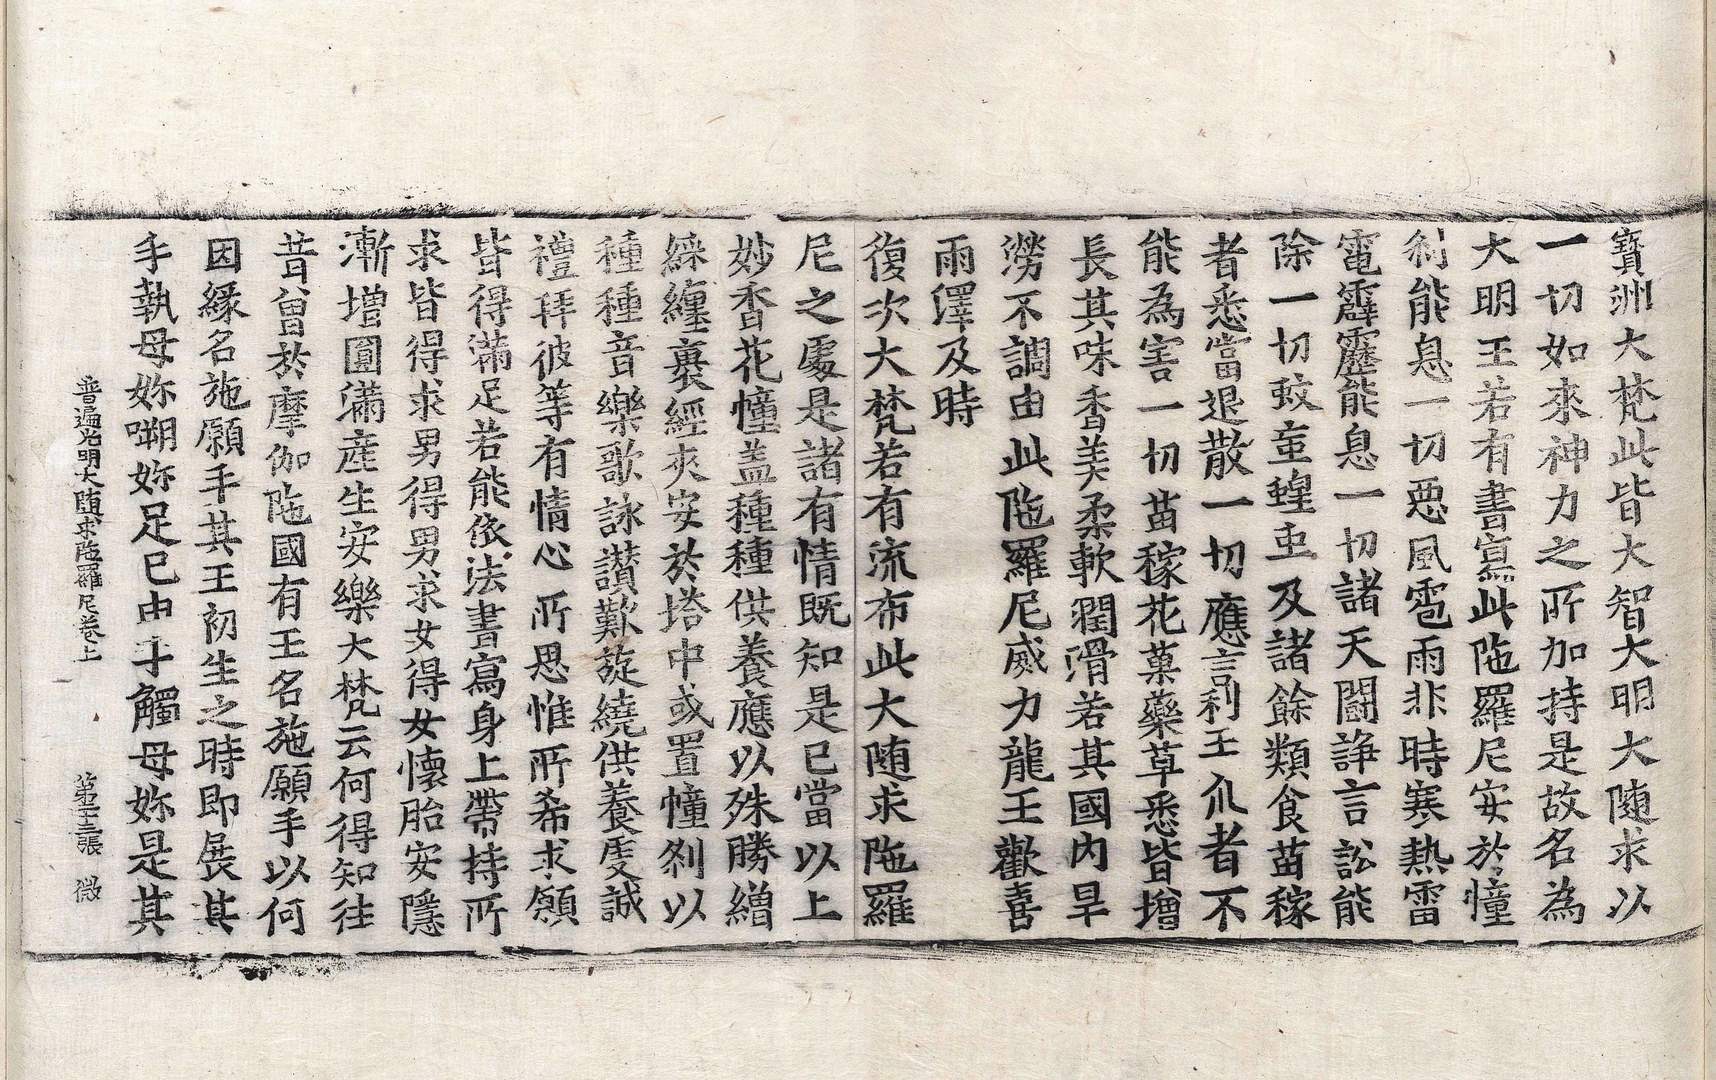 寶洲大梵此皆大智大明大随求以
一切如來神力之所加持是故名為
大明王若有書寫此陁羅尼安於幢
刹能息一切惡風雹雨非時寒熱雷
電霹靂能息一切諸天鬪諍言訟能
除一切蚊䖟蝗虫及諸餘類食苗稼
者悉當退散一切應言利王爪者不
能為害一切苗稼花菓藥草悉皆增
長其味香美柔軟潤滑若其國內旱
澇不調由此陁羅尼威力龍王歡喜
雨澤及時
復次大梵若有流布此大随求陁羅
尼之處是諸有情既知是已當以上
妙香花幢盖種種供養應以殊勝繒
綵纏裹經夾安於塔中或置幢刹以
種種音樂歌詠讃歎旋繞供養虔誠
禮拜彼等有情心所思惟所希求願
皆得滿足若能依法書寫身上帶持所
求皆得求男得男求女得女懷胎安隱
漸增圓滿產生安樂大梵云何得知往
昔曾於摩伽陁國有王名施願手以何
因緣名施願手其王初生之時即展其
手執母妳嗍妳足已由手觸母妳是其
普遍光明大随求陁羅尼卷上 第十三張 微